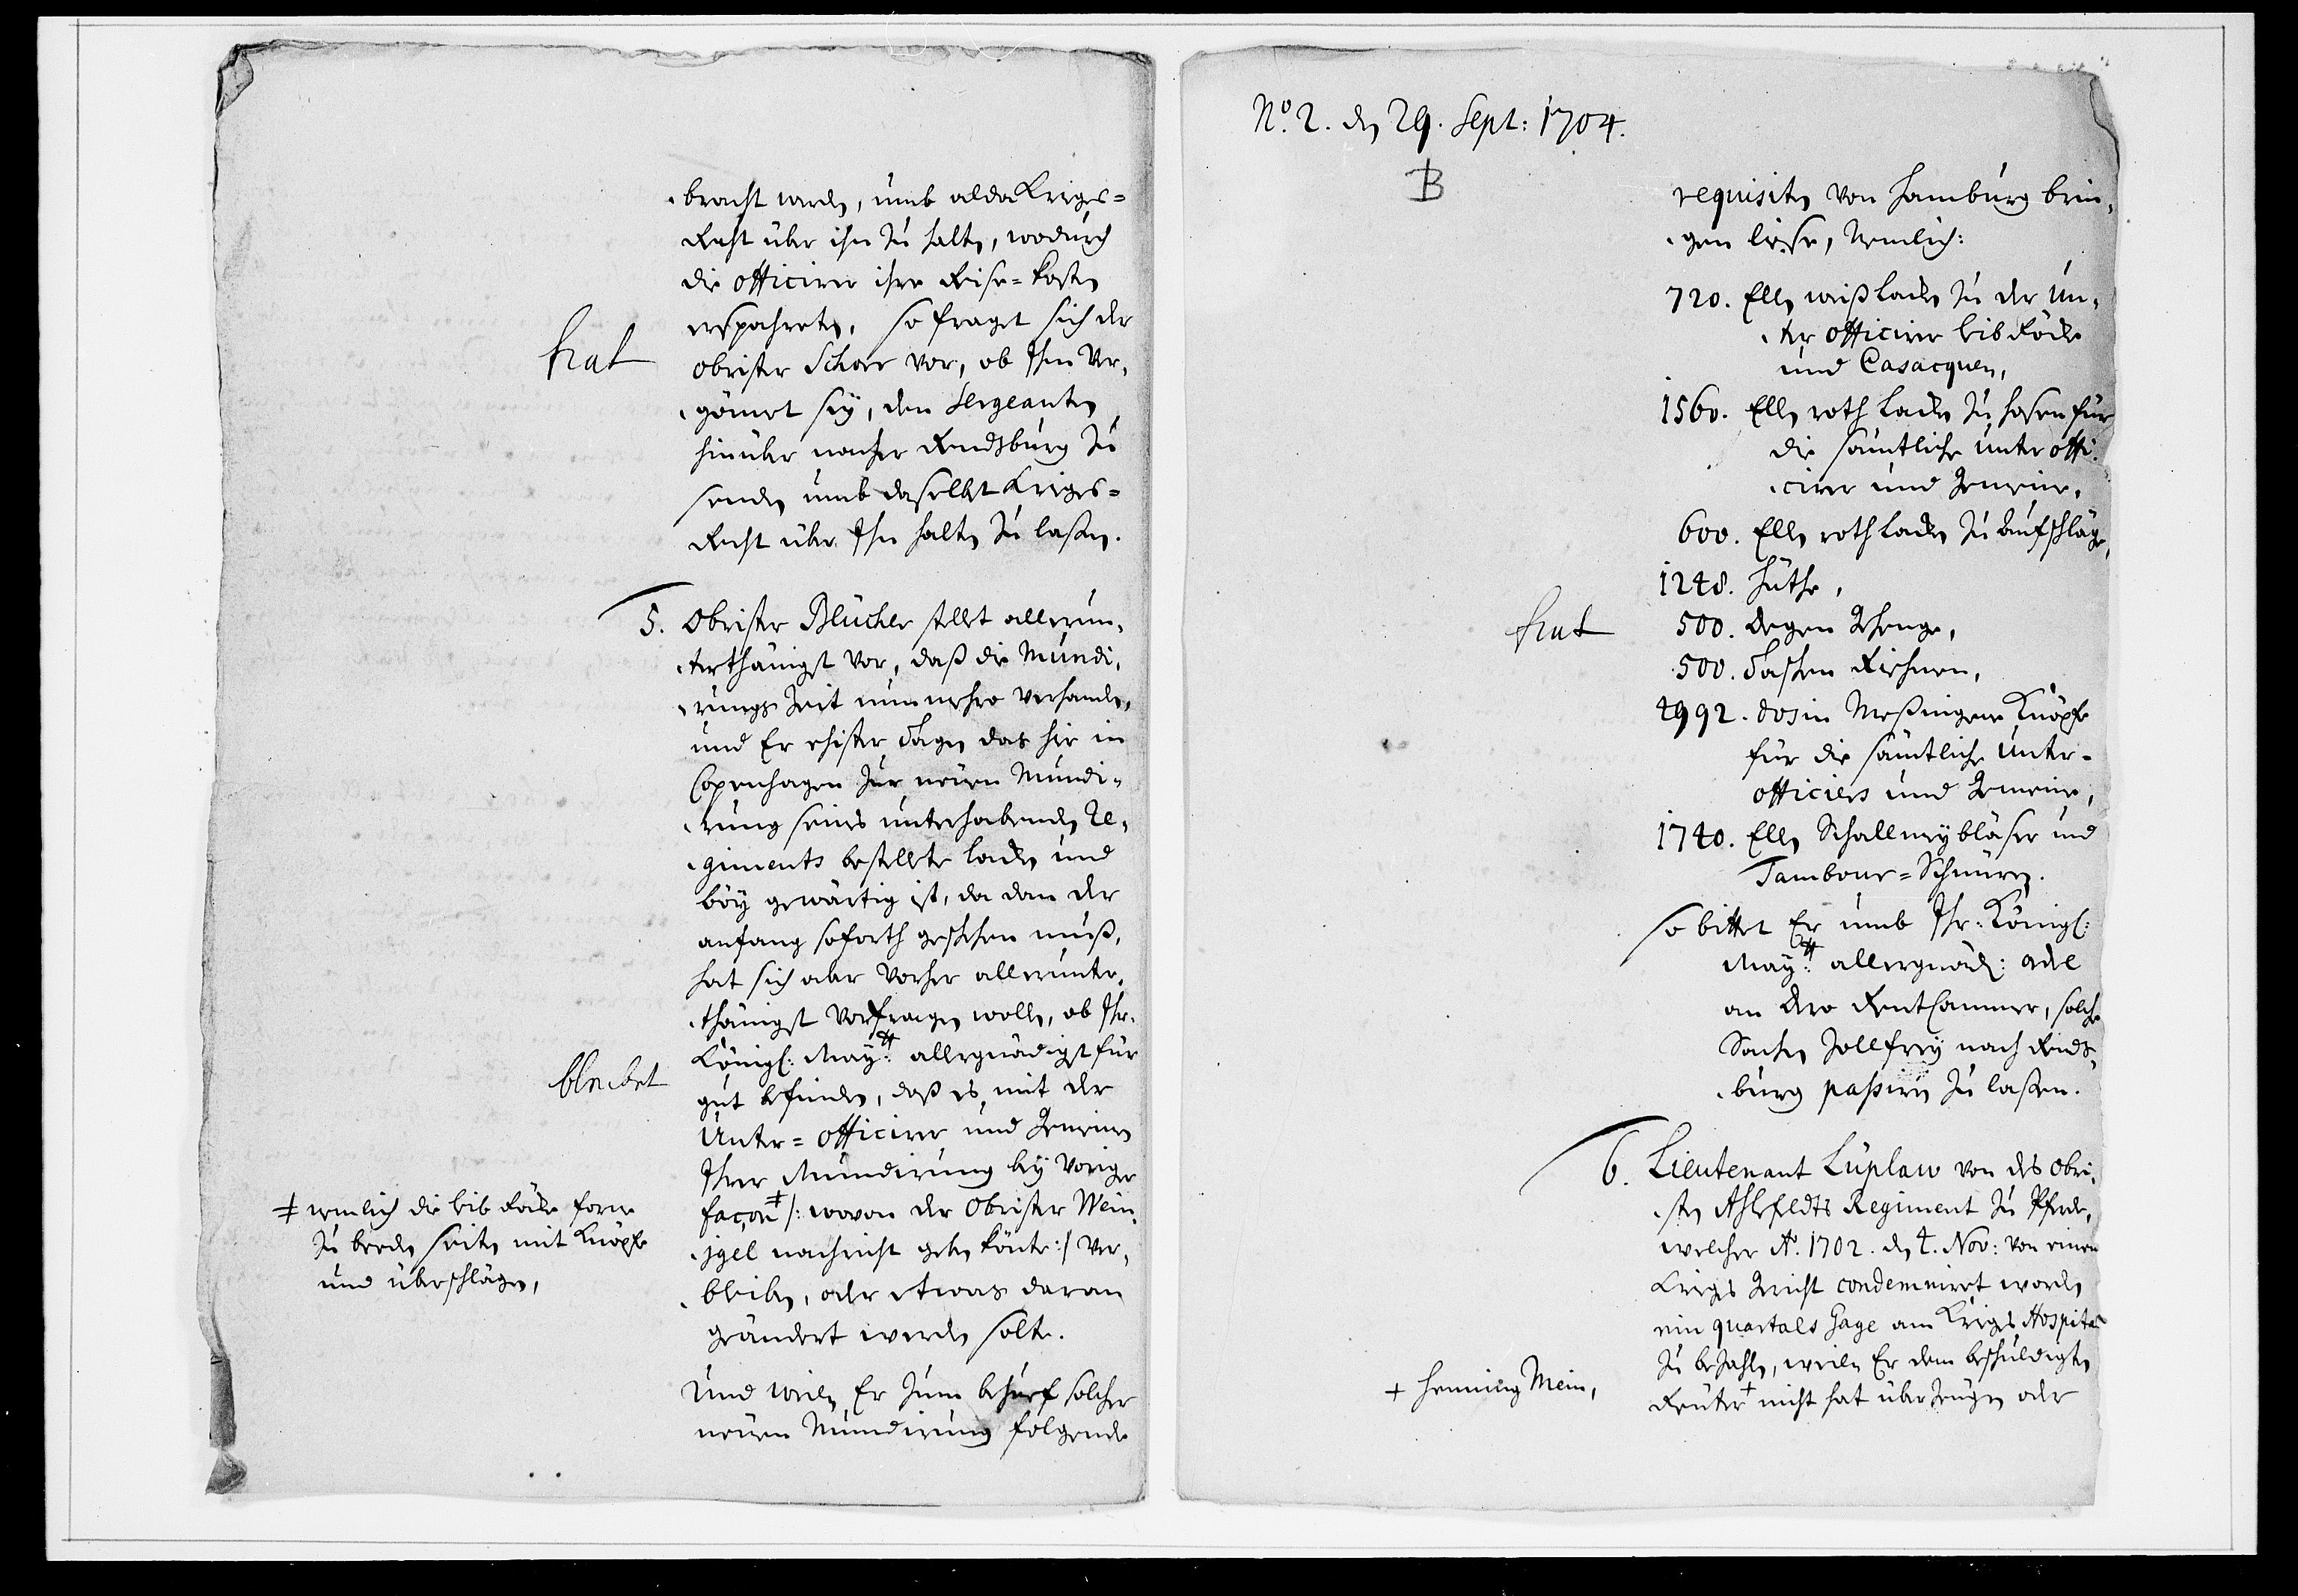 bracht werden, umb alda Krieges=
Recht über ihn zu halten, wodurch
die officirer ihre Reise=kosten
erspahreten, so fraget sich der
fiat
obrister Schorr vor, ob Ihm ver,
gönnet seÿ, den Sergeanten
hinüber nacher Rendsburg zu
senden umb daselbst Krieges=
Recht über Ihn halten zu laßen.
5. Obrister Blücher stellet allerun,
terthänigst vor, daß die Mundi,
rungs Zeit nunmehro verhanden,
und Er ehister Tagen das hie in
Copenhagen zur neüen Mundi,
rung seines unterhabenden Re,
giments bestellte laken und
böÿ gewärtig ist, da dan der
anfang soforth geschehen muß,
hat sich aber vorher allerunter,
thänigst vorfragen wollen, ob Ihr.
Königl: Maÿ:tt allergnädigst für
bleibet
gut befinden, daß es mit der
Unter=officirer und Gemeinen
Ihrer Mundirung beÿ voriger
façon ‡ /: wovon der Obrister Wein,
jgel nachricht geben könte :/ ver,
bleiben, oder etwas daran
geändert werden solte.
‡ nemlich die leib Röcke forne
zu beeden seiten mit Knöpfe
und überschlägen,
Und weiln Er zum behuef solcher
neüen Mundirung folgende
No. 2. den 29. Sept: 1704.
B
requisiten von Hamburg brin,
gen liese, Nemlich:
720. Ellen weiß laken zu der Un,
ter officirer leib Röcke
und Casacquen,
1560. Ellen roth laken zu hosen für
die sämtliche unter offi,
cirer und Gemeine,
600. Ellen roth laken zu Aufschläge,
1248. Hüthe,
fiat
500. degen Gehenge,
500. Taschen Riehmen,
4992. dosin Meßingene Knöpfe
für die sämtliche Unter=
officiers und Gemeine,
1740. Ellen Schallmeÿbläser und
Tambour=Schnüren.
so bittet Er umb Ihr: Königl:
Maÿ:tt allergnäd: ordre
an dero RentCammer, solche
Sachen Zollfreÿ nach Rends,
burg paßiren zu laßen.
6. Lieutenant Lüplaw von des Obri,
sten Ahlefeldts Regiment zu Pferde,
welcher Ao. 1702. den 4. Nov: von einem
Kriegs Gericht condemniret worden
ein quartals Gage am Kriegs Hospital
zu bezahlen, weiln Er dem beschuldigten
Reuter + nicht hat überzeügen oder
+ Henning Mein,